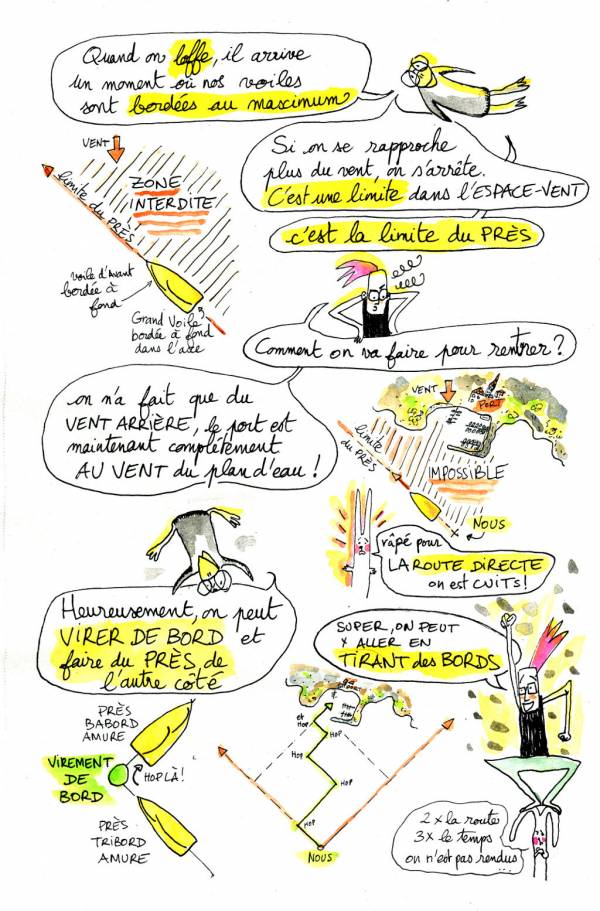 Quand on loffe, il arrive
un moment où nos voiles
sont bordées au maximum
Si on se rapproche
plus du vent, on s'arrête.
C'est une limite dans l'ESPACE-VENT
c'est la limite du PRÈS
VENT
ZONE
INTERDITE
limite du PRÈS
voile d'avant
bordée à
fond
Grand Voile
bordée à fond
dans l'axe
Comment on va faire pour rentrer?
on n'a fait que du
VENT ARRIÈRE, le port est
maintenant complètement
AU VENT du plan d'eau !
VENT
PORT
limite
du PRÈS
IMPOSSIBLE
NOUS
râpé pour
LA ROUTE DIRECTE
on est CUITS!
Heureusement, on peut
VIRER DE BORD et
faire du PRÈS, de
l'autre côté
SUPER, ON PEUT
Y ALLER EN
TIRANT des BORDS
PRÈS
BABORD
AMURE
VIREMENT
DE
BORD
HOP LÀ!
PRÈS
TRIBORD
AMURE
et
HOP
HOP
HOP
HOP
NOUS
2 x la route
3x le temps
on n'est pas rendus...